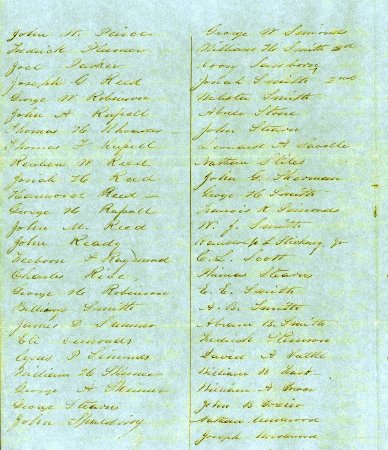 John W. Peirce
Frederick Plumer
Joel Parker
Joseph O Reed
George W Robinson
John A Russell
Thomas H Rhoades
Thomas F Russell
Reuben W Reed
Josiah H Reed
Hammond Reed
George H Russell
John M. Reed
John Ready
F Raymond
Charles Rice
George H Robinson
Billings Smith
James D
Eli Simonds
Cyrus P Simonds
William H
George A
George Stearns
John Spaulding
George W Simond
William H Smith 3d
Josiah Smith 2nd
Webster Smith
Abner Stone
John Stearn
Leonard A Saville
Nathan Stiles
John G. Sherman
George H Smith
Francis K Simonds
W. J. Smith
Jr
C. L. Scott
Thomas Stearns
E. E. Smith
A. B. Smith
Abram B. Smith
Frederick Stimson
David A Tuttle
William B
William A
John B
Nathan Underwood
Joseph Underwood